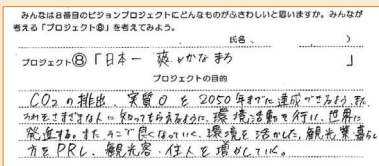 みんなは8番目のビジョンプロジェクトにどんなものがふさわしいと思いますか。みんなが
考える「プロジェクト⑧」を考えてみよう。
氏名、（　　　　　）
プロジェクト⑧「日本一 爽やかなまち」
プロジェクトの目的
CO2の排出、実質0を2050年までに達成できるよう、また、
それをさまざまな人に知ってもらえるように、環境活動を行い、世界に
発進する。また、そこで良くなっていく、環境を活かした、観光業、暮らし
方をPRし、観光客・住人を増やしていく。